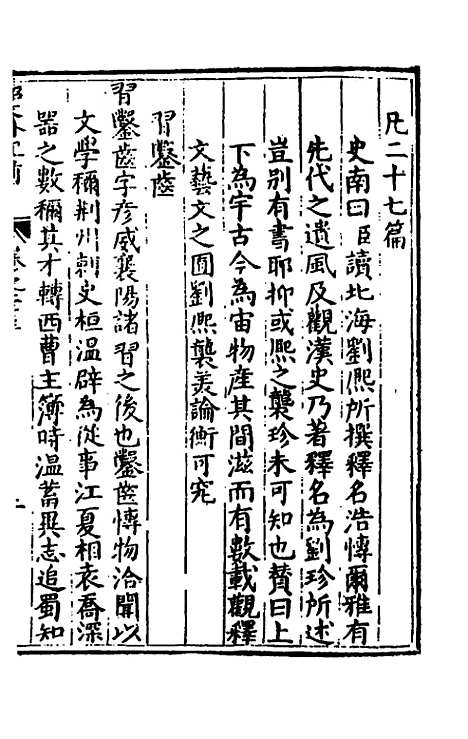 凡二十七篇
史南曰臣讀北海劉熈所撰釋名浩博爾雅有
先代之遺風及觀漢史乃著釋名為劉珍所述
豈别有書耶抑或熈之襲珍未可知也賛曰上
下為宇古今為宙物産其間滋而有數載觀釋
文藝文之囿劉熈襲美論衡可究
習鑿齒
習鑿齒字彦威襄陽諸習之後也鑿齒博物洽聞以
文學稱荆州刺史桓温辟為從事江夏相袁喬深
器之數稱其才轉西曹主簿時温蓄異志追蜀知